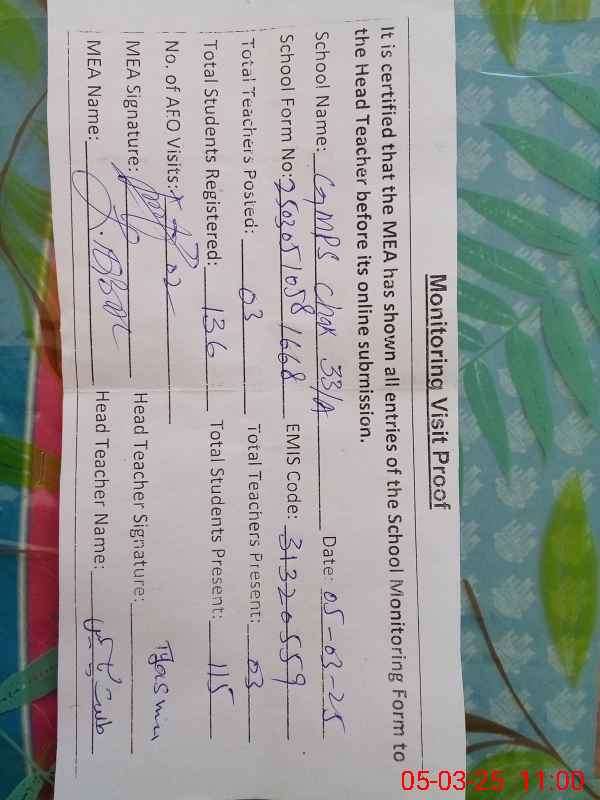 Monitoring Visit Proof
It is certified that the MEA has shown all entries of the School Monitoring Form to
the Head Teacher before its online submission.
School Name: GMPS Chak 33/A Date: 05-03-25
School Form No: 2503051058 1668 EMIS Code: 31320559
Total Teachers Posted: 03 Total Teachers Present: 03
Total Students Registered: 136 Total Students Present: 115
No. of AEO Visits: 02
MEA Signature: Head Teacher Signature:
MEA Name: Head Teacher Name:
05-03-25 11:00